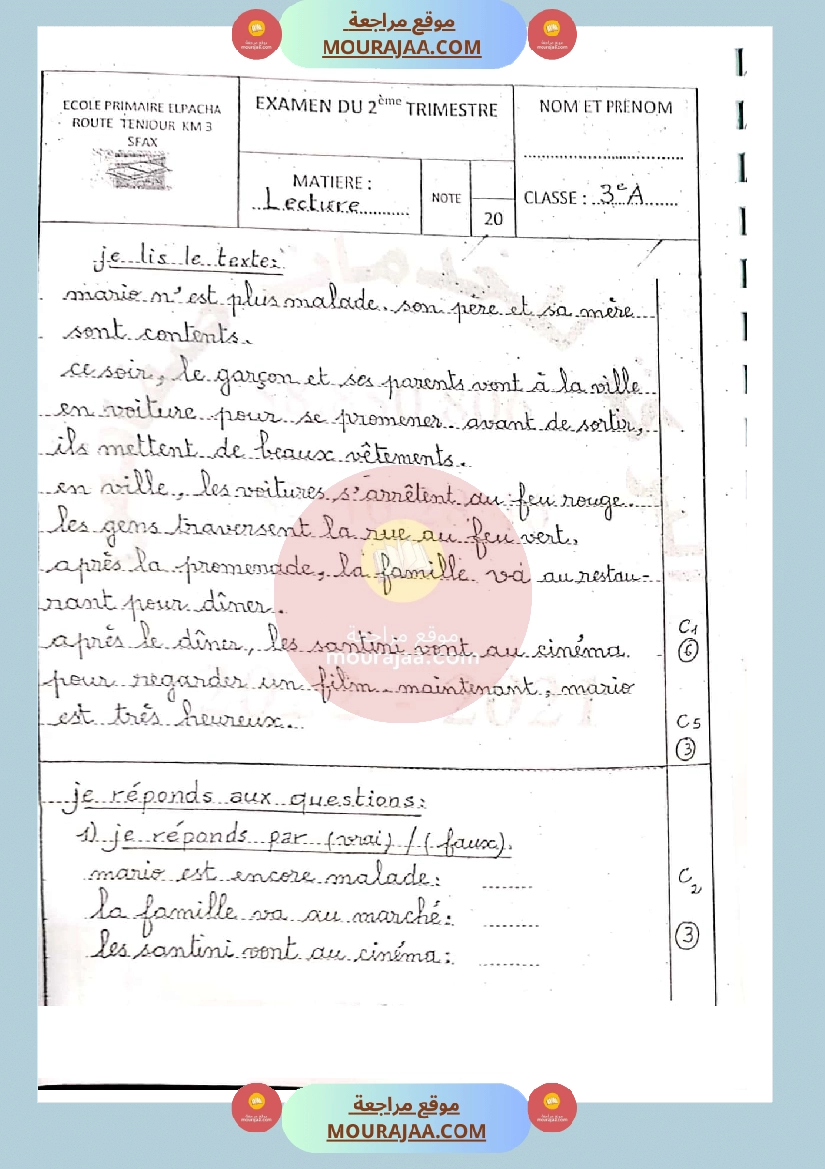 موقع مراجعة
MOURAJAA.COM
ECOLE PRIMAIRE ELPACHA
ROUTE TENIOUR KM 3
SFAX
EXAMEN DU 2ème TRIMESTRE
NOM ET PRENOM
MATIERE :
Lecture
NOTE
20
CLASSE : 3e A
je lis le texte:
mario n'est plus malade. son père et sa mère
sont contents.
ce soir, le garçon et ses parents vont à la ville
en voiture pour se promener. avant de sortir,
ils mettent de beaux vêtements.
en ville, les voitures s'arrêtent au feu rouge.
les gens traversent la rue au feu vert.
après la promenade, la famille va au restau-
rant pour dîner.
après le dîner, les santini vont au cinéma
pour regarder un film. maintenant, mario
est très heureux.
C1
6
C5
3
موقع مراجعة
mourajaa.com
je réponds aux questions:
1) je réponds par (vrai) / (faux).
mario est encore malade:
la famille va au marché:
les santini vont au cinéma:
C2
3
موقع مراجعة
MOURAJAA.COM